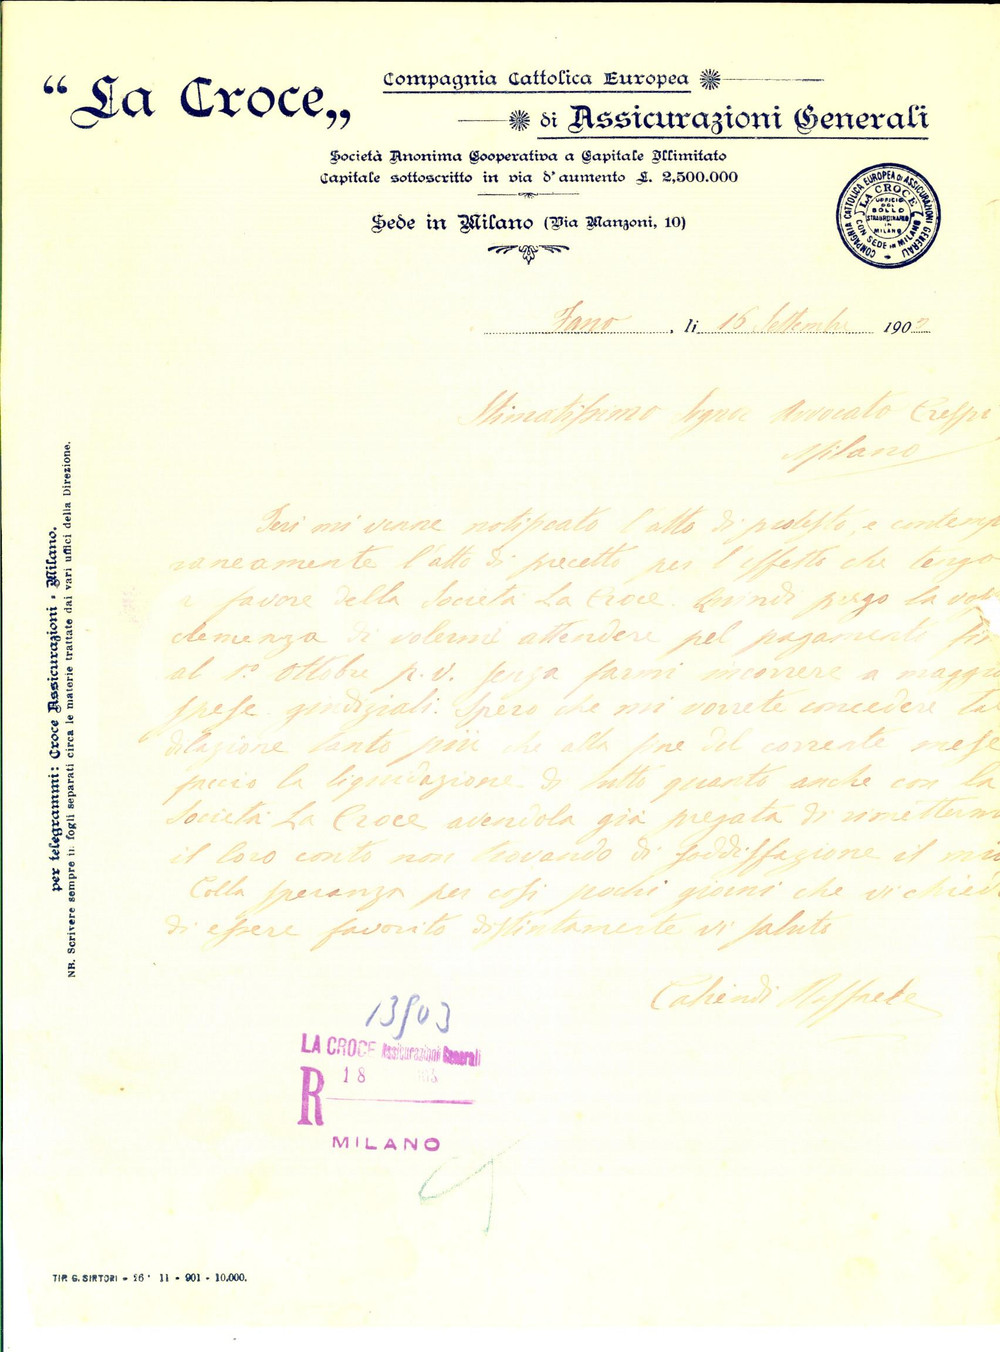 “La Croce„
Compagnia Cattolica Europea
di Assicurazioni Generali
Società Anonima Cooperativa a Capitale Illimitato
Capitale sottoscritto in via d'aumento £. 2,500.000
Sede in Milano (Via Manzoni, 10)
COMPAGNIA CATTOLICA EUROPEA DI ASSICURAZIONI GENERALI
LA CROCE
CON SEDE IN MILANO
UFFICIO
DEL
BOLLO
STRAORDINARIO
IN
MILANO
Fano, li 16 Settembre 190
Stimatissimo Signor Avvocato Crespi
Milano
Ieri mi venne notificato l'atto di protesto, e contempo
raneamente l'atto di precetto per l'effetto che tengo
a favore della Società La Croce. Quindi prego la vost
clemenza di volermi attendere pel pagamento fin
al 1º. Ottobre p. v. senza farmi incorrere a maggio
spese giudiziali. Spero che mi vorrete concedere tal
dilazione tanto più che alla fine del corrente mese
faccio la liquidazione di tutto quanto anche con la
Società La Croce avendola già pregata di rimetterm
il loro conto non trovando di soddisfazione il mio
Colla speranza per così pochi giorni che vi chied
di essere favorito distintamente vi saluto
Raffaele
13903
LA CROCE Assicurazioni Generali
R 18
MILANO
per telegrammi: Croce Assicurazioni - Milano.
NB. Scrivere sempre in fogli separati circa le materie trattate dai vari uffici della Direzione.
TIP. G. SIRTORI - 26 11 - 901 - 10,000.